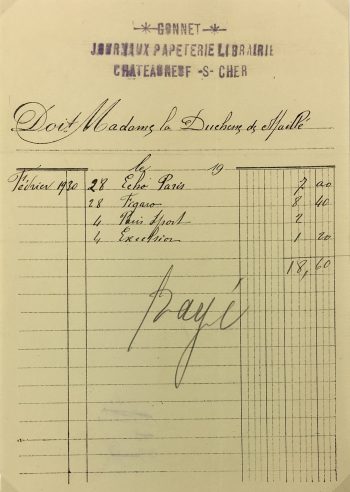 GONNET
JOURNAUX PAPETERIE LIBRAIRIE
CHATEAUNEUF -S- CHER
Doit Madame la Duchesse de Maillé
le 19
Février 1930 28 Echo Paris 7 00
28 Figaro 8 40
4 Paris Sport 2
4 Excelsior 1 20
18,60
Payé